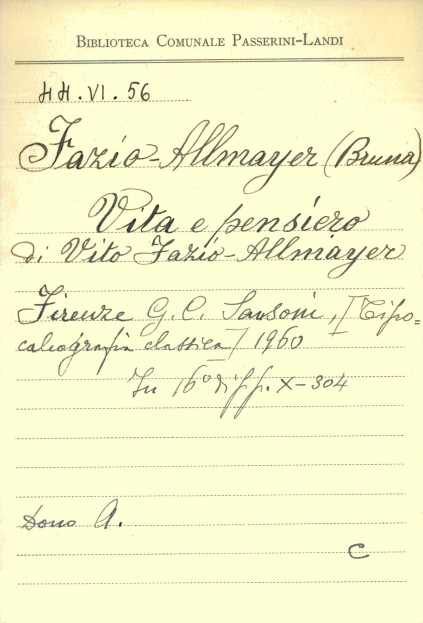 BIBLIOTECA COMUNALE PASSERINI-LANDI
HH.VI.56
Fazio-Allmayer (Bruna)
Vita e pensiero
di Vito Fazio-Allmayer
Firenze G. C. Sansoni, [Tipo=
caleografia classica] 1960
In 16° di pp. X-304
Dono A.
C